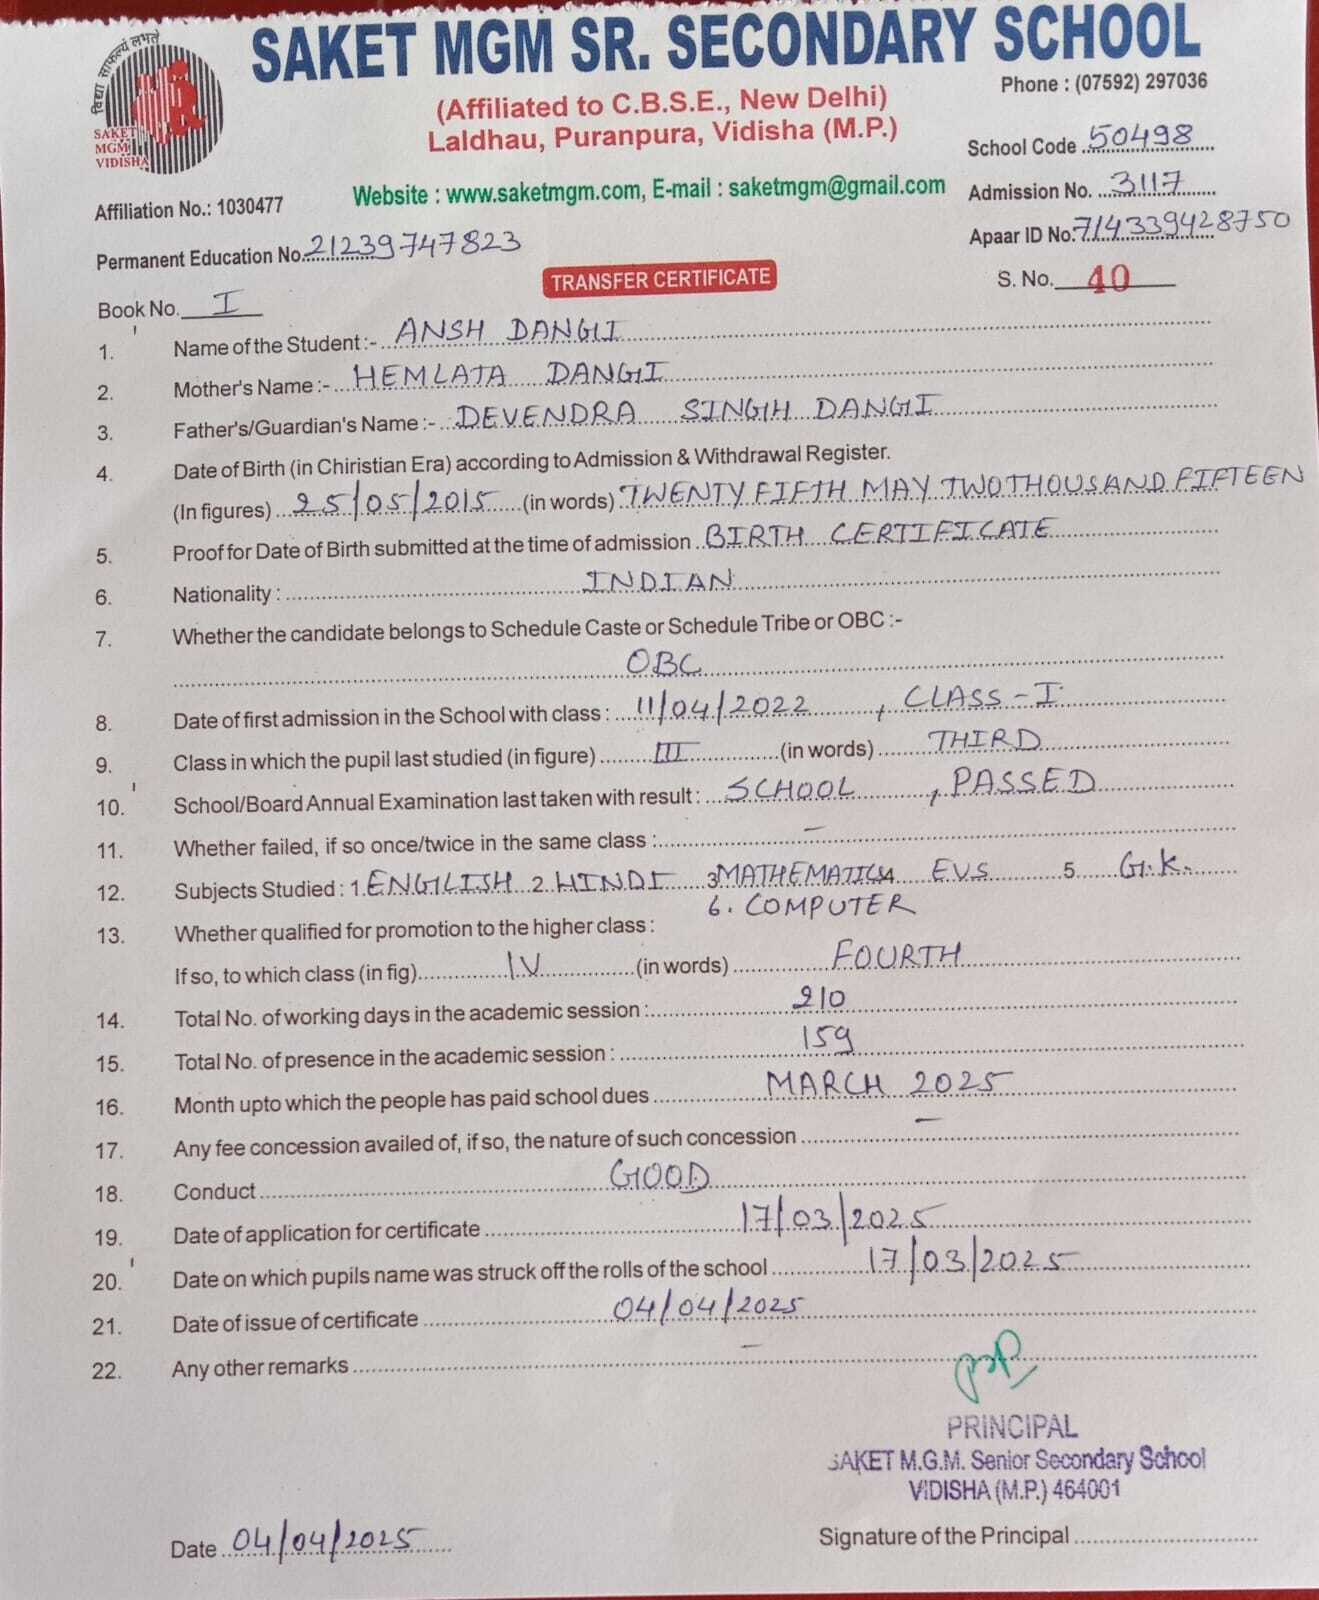 विद्या साफल्यं लभते
SAKET
MGM
VIDISHA
SAKET MGM SR. SECONDARY SCHOOL
(Affiliated to C.B.S.E., New Delhi)
Laldhau, Puranpura, Vidisha (M.P.)
Website : www.saketmgm.com, E-mail : saketmgm@gmail.com
Phone : (07592) 297036
School Code 50498
Admission No. 3117
Apaar ID No. 714339428750
Affiliation No.: 1030477
Permanent Education No. 21239747823
TRANSFER CERTIFICATE
S. No. 40
Book No. I
1. Name of the Student :- ANSH DANGI
2. Mother's Name :- HEMLATA DANGI
3. Father's/Guardian's Name :- DEVENDRA SINGH DANGI
4. Date of Birth (in Chiristian Era) according to Admission & Withdrawal Register.
(In figures) 25/05/2015 (in words) TWENTY FIFTH MAY TWO THOUSAND FIFTEEN
5. Proof for Date of Birth submitted at the time of admission BIRTH CERTIFICATE
6. Nationality : INDIAN
7. Whether the candidate belongs to Schedule Caste or Schedule Tribe or OBC :-
OBC
8. Date of first admission in the School with class : 11/04/2022 , CLASS - I
9. Class in which the pupil last studied (in figure) III (in words) THIRD
10. School/Board Annual Examination last taken with result : SCHOOL , PASSED
11. Whether failed, if so once/twice in the same class : –
12. Subjects Studied : 1. ENGLISH 2. HINDI 3 MATHEMATICS 4 EVS 5 G.K.
6. COMPUTER
13. Whether qualified for promotion to the higher class :
If so, to which class (in fig) IV (in words) FOURTH
14. Total No. of working days in the academic session : 210
15. Total No. of presence in the academic session : 159
16. Month upto which the people has paid school dues MARCH 2025
17. Any fee concession availed of, if so, the nature of such concession –
18. Conduct GOOD
19. Date of application for certificate 17/03/2025
20. Date on which pupils name was struck off the rolls of the school 17/03/2025
21. Date of issue of certificate 04/04/2025
22. Any other remarks –
PRINCIPAL
SAKET M.G.M. Senior Secondary School
VIDISHA (M.P.) 464001
Date 04/04/2025
Signature of the Principal